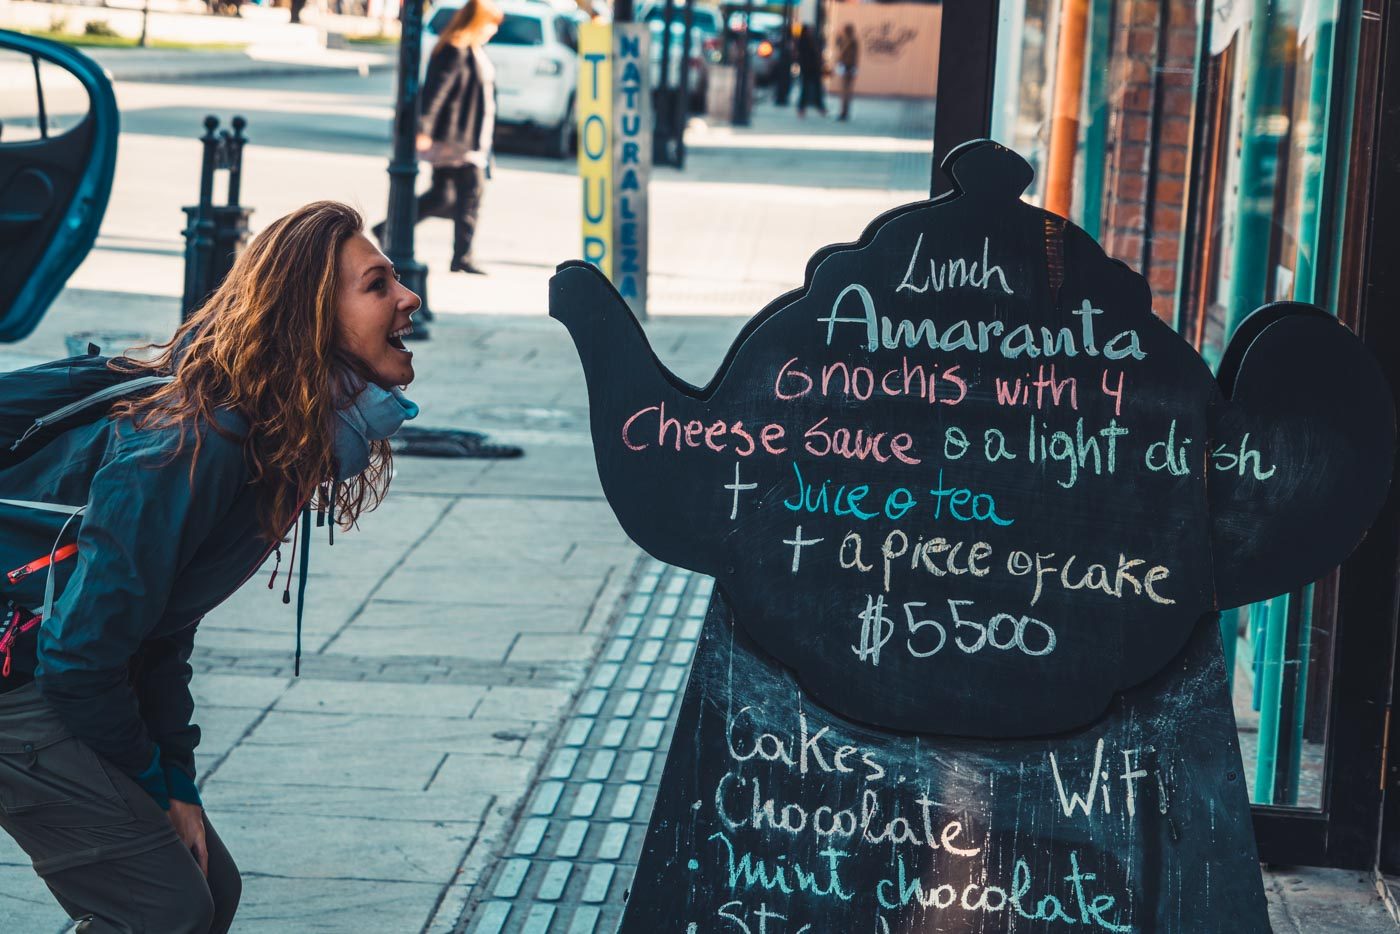 TOUR
NATURALEZA
Lunch
Amaranta
Gnochis with 4
Cheese sauce o a light dish
+ Juice o tea
+ a piece of cake
$5500
Cakes
WiFi
• Chocolate
• Mint chocolate